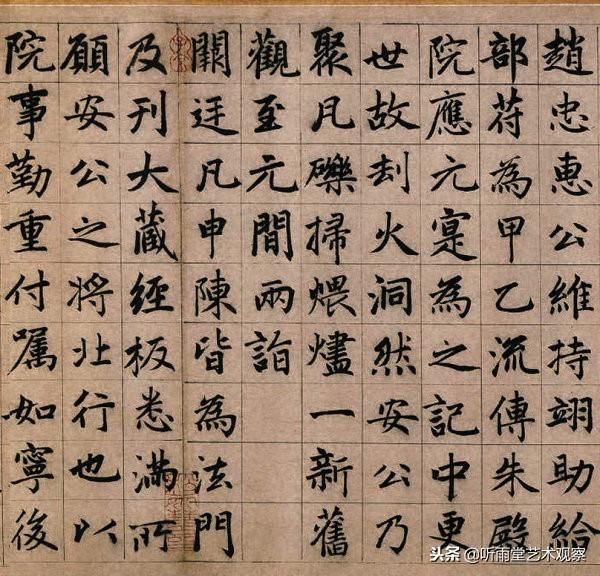 趙忠惠公維持翊助給
部苻為甲乙流傳朱殿
院應元寔為之記中更
世故刦火洞然安公乃
聚瓦礫掃煨燼一新舊
觀至元間兩詣
闕廷凡申陳皆為法門
及刊大藏經板悉滿所
願安公之將北行也以
院事勤重付囑如寧後
头条 @听雨堂艺术观察